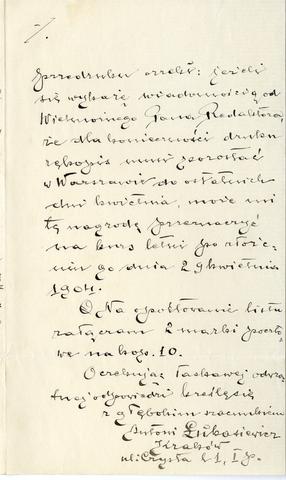 przedruku orzekł: jeżeli
się wykażę wiadomością od
Wielmożnego Pana Redaktora,
że dla konieczności druku
rękopis musi pozostać
w Warszawie do ostatnich
dni kwietnia, może mi
tę nagrodę przeznaczyć
na kurs letni po złoże-
niu go dnia 29 kwietnia
1904.
Na opłatowanie listu
załączam 2 marki poczto-
we na kop. 10.
Oczekując łaskawej odwro-
tnej odpowiedzi kreślę się
z głębokim szacunkiem
Antoni Łukasiewicz
Kraków
ul. Czysta L 1, I p.